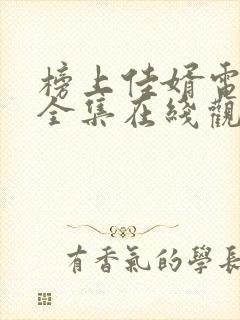 榜上佳婿電
全集在綫觀
有香氣的學長